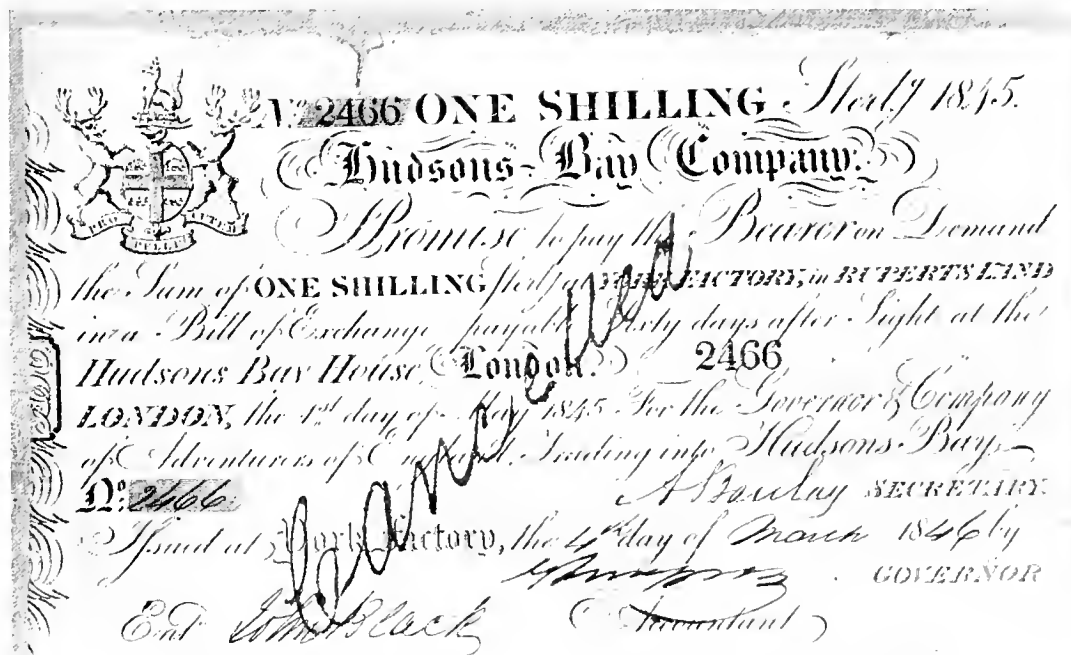 No. 2466 ONE SHILLING Sterlg 1845.
Hudsons-Bay Company.
PRO PELLE CUTEM
Promise to pay the Bearer on Demand
the Sum of ONE SHILLING Sterlg at YORK FACTORY, in RUPERTS LAND
in a Bill of Exchange payable Sixty days after Sight at the
Hudsons Bay House, London. 2466
LONDON, the 1st day of May 1845 For the Governor & Company
of Adventurers of England, Trading into Hudsons-Bay
No. 2466 A Barclay SECRETARY.
Issued at York Factory, the 4th day of March 1846 by
GOVERNOR
Ent. John Black Accountant
Cancelled